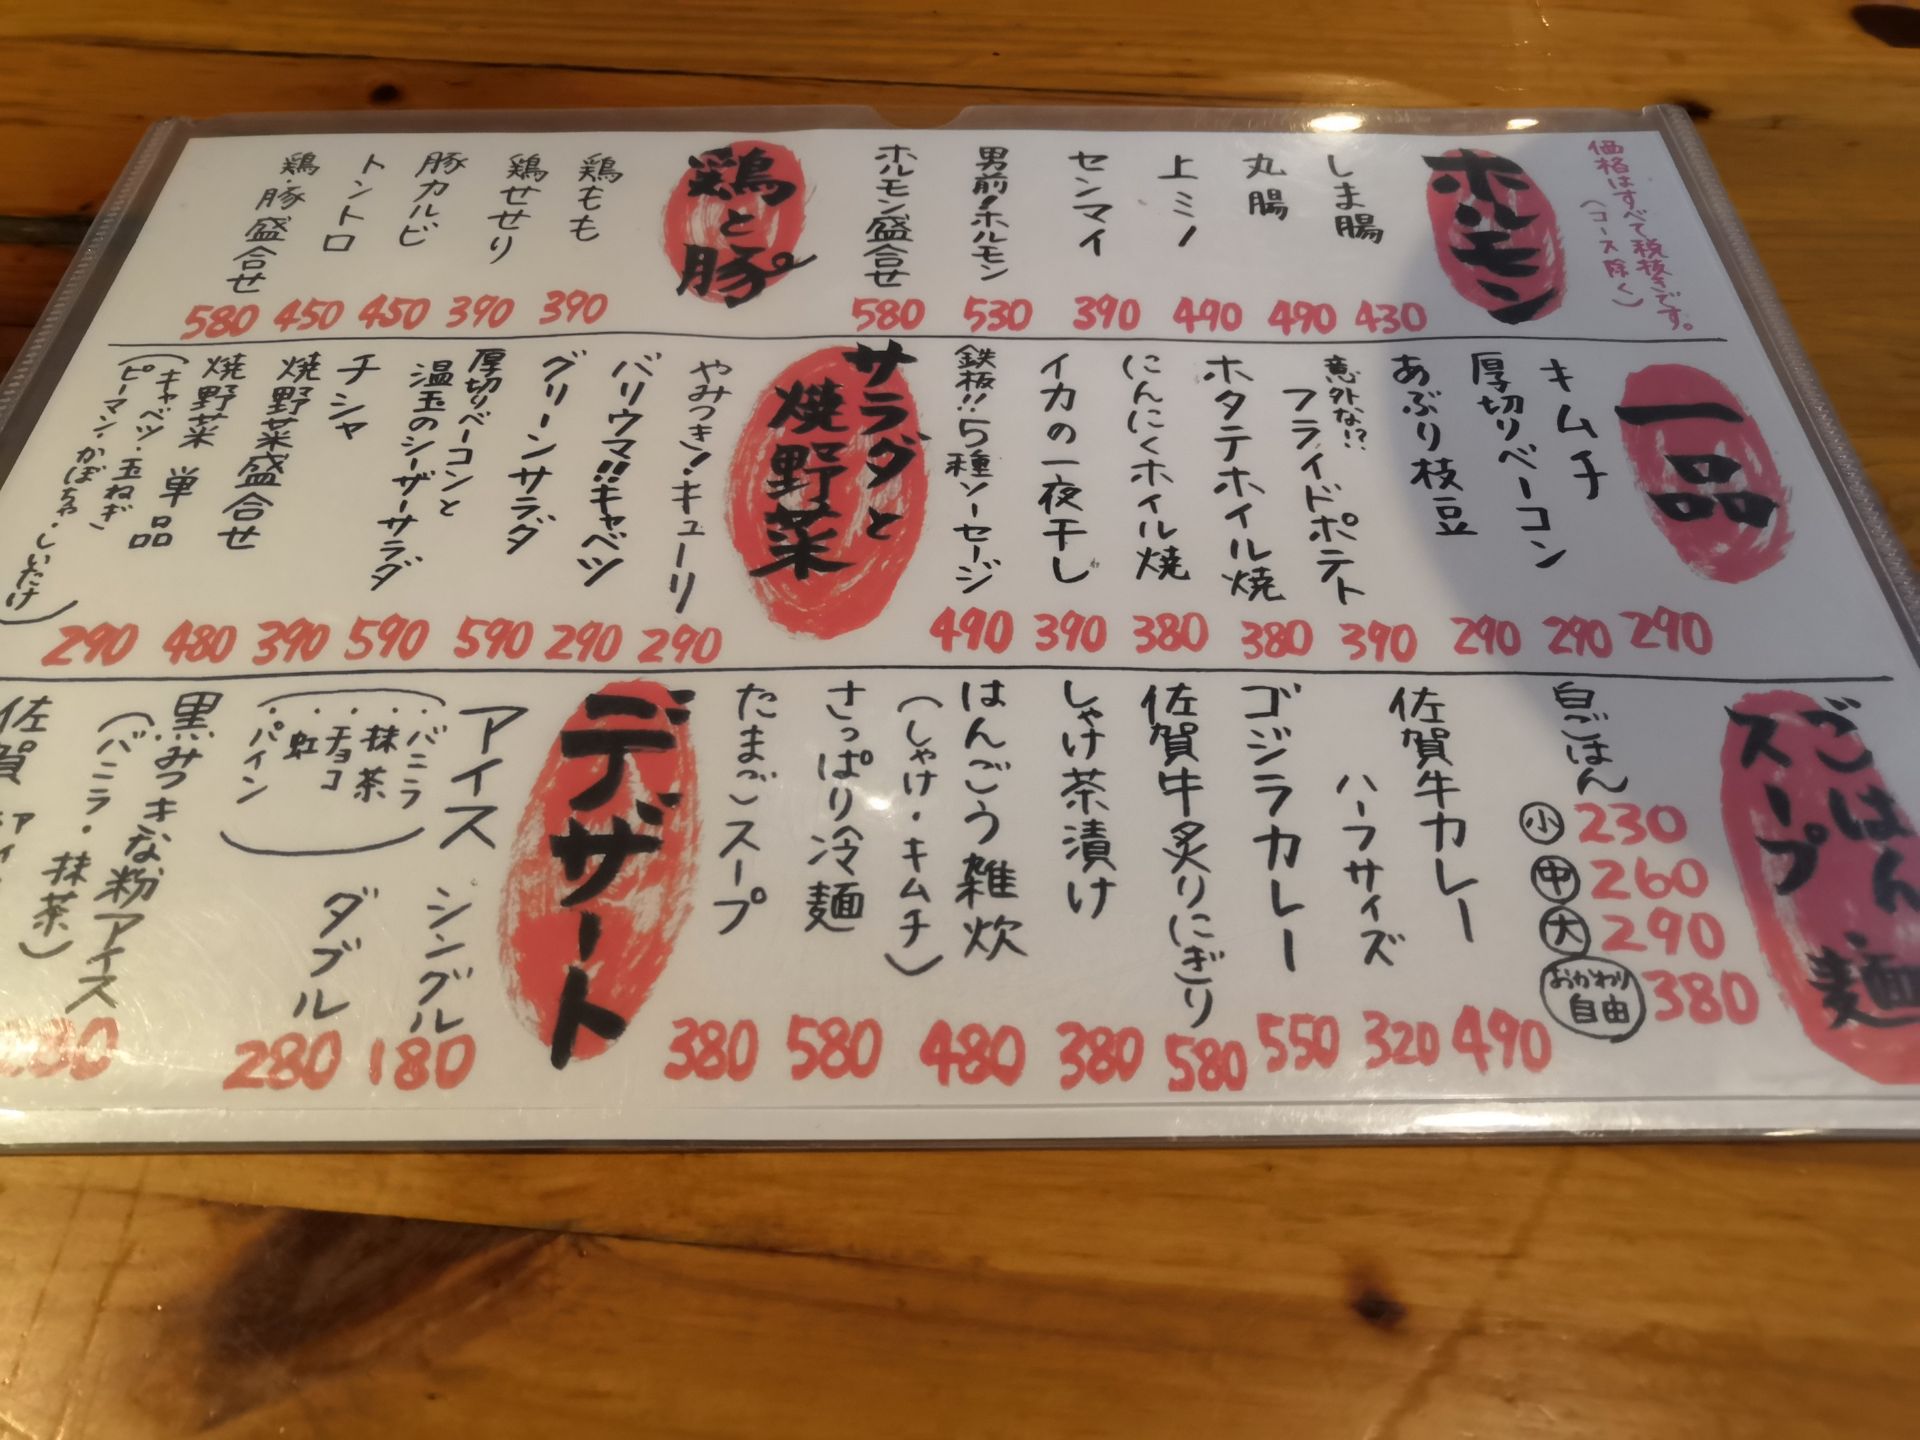 価格はすべて税抜きです。
(コース除く)
ホルモン
しま腸 430
丸腸 490
上ミノ 490
センマイ 390
男前!ホルモン 530
ホルモン盛合せ 580
鶏と豚
鶏もも 390
鶏せせり 390
豚カルビ 450
トントロ 450
鶏・豚盛合せ 580
一品
キムチ 290
厚切りベーコン 290
あぶり枝豆 290
意外な!?
フライドポテト 390
ホタテホイル焼 380
にんにくホイル焼 380
イカの一夜干し 390
鉄板!!5種ソーセージ 490
サラダと
焼野菜
やみつき!キューリ 290
バリウマ!!キャベツ 290
グリーンサラダ 590
厚切りベーコンと
温玉のシーザーサラダ 590
チシャ 390
焼野菜盛合せ 480
焼野菜 単品 290
(キャベツ・玉ねぎ
ピーマン・かぼちゃ・しいたけ)
ごはん 麺
スープ
白ごはん
小 230
中 260
大 290
おかわり自由 380
佐賀牛カレー 490
ハーフサイズ 320
ゴジラカレー 550
佐賀牛炙りにぎり 580
しゃけ茶漬け 380
はんごう雑炊 480
(しゃけ・キムチ)
さっぱり冷麺 580
たまごスープ 380
デザート
アイス シングル 180
ダブル 280
(・バニラ
・抹茶
・チョコ
・虹
・パイン)
黒みつきな粉アイス
(バニラ・抹茶)
佐賀